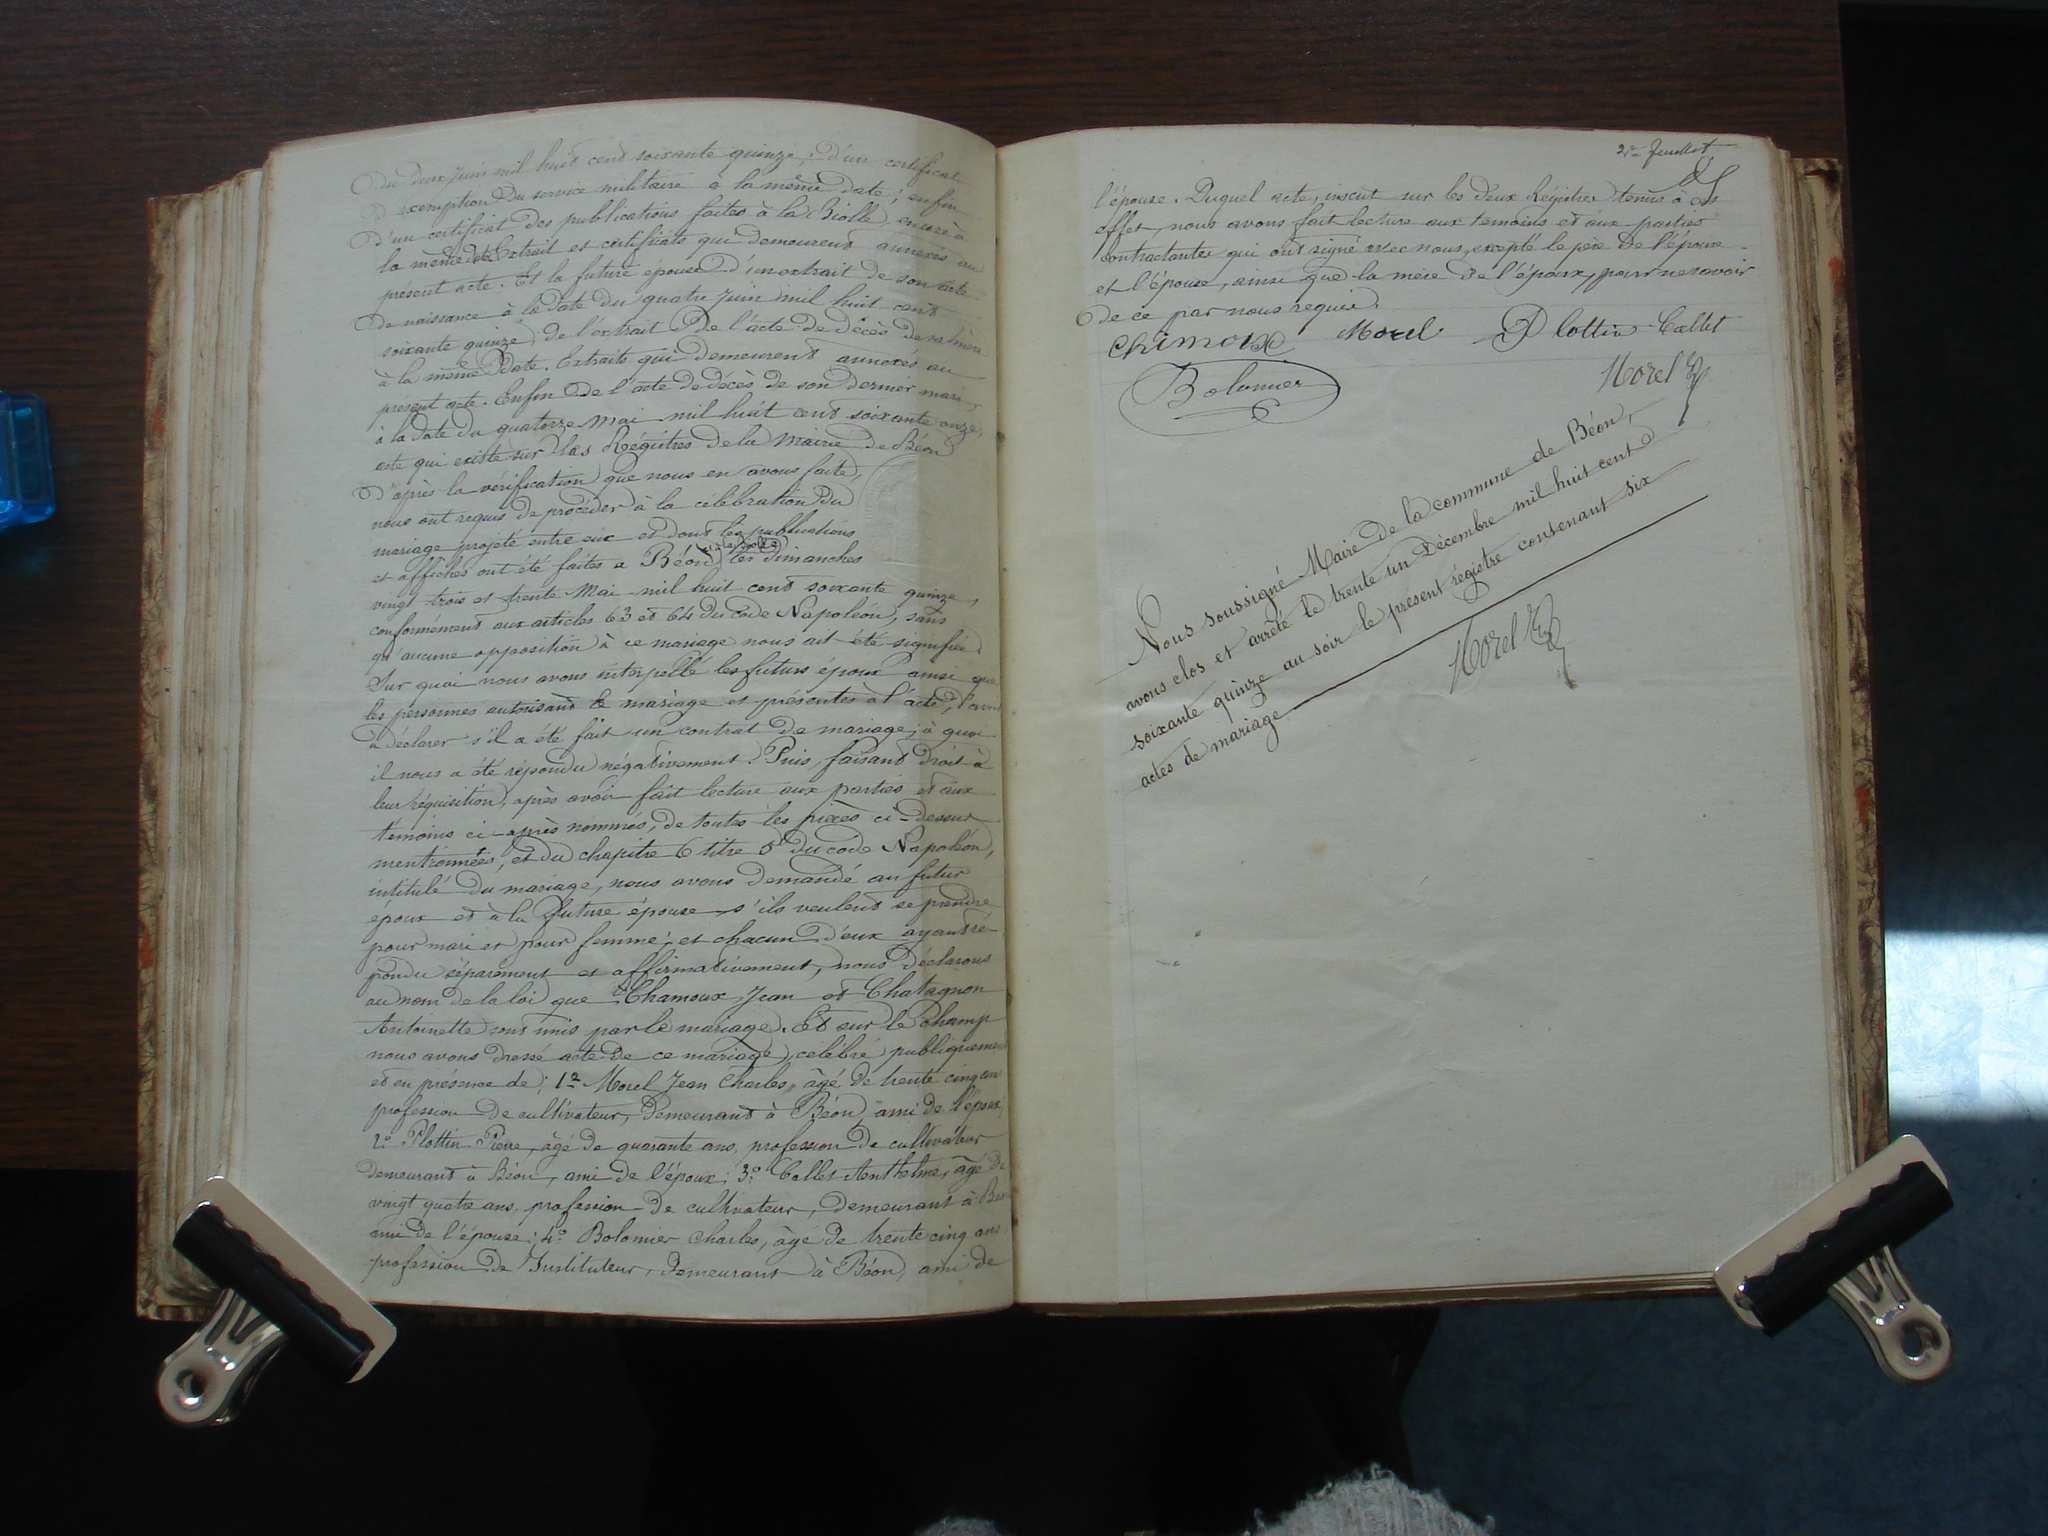 du deux Juin mil huit cent soixante quinze; d'un certificat
d'exemption du service militaire à la même date; enfin
d'un certificat des publications faites à la Biolle encore à
la même date Extrait et certificats qui demeurent annexés au
présent acte. Et la future épouse d'un extrait de son acte
de naissance à la date du quatre Juin mil huit cent
soixante quinze de l'extrait de l'acte de décès de sa mère
à la même date. Extraits qui demeurent annexés au
présent acte. Enfin de l'acte de décès de son dernier mari,
à la date du quatorze mai mil huit cent soixante onze,
acte qui existe sur les Régistres de la Mairie de Béon
d'après la vérification que nous en avons faite,
nous ont requis de procéder à la célébration du
mariage projeté entre eux et dont les publications
et affiches ont été faites à Béon et à la Biolle les dimanches
vingt trois et trente Mai mil huit cent soixante quinze,
conformément aux articles 63 et 64 du code Napoléon, sans
qu'aucune opposition à ce mariage nous ait été signifiée.
Sur quoi nous avons interpellé les futurs époux ainsi que
les personnes autorisant le mariage et présentes à l'acte,
à déclarer s'il a été fait un contrat de mariage, à quoi
il nous a été répondu négativement. Puis, faisant droit à
leur réquisition, après avoir fait lecture aux parties et aux
témoins ci-après nommés, de toutes les pièces ci-dessus
mentionnées, et du chapitre 6 titre 5 du code Napoléon,
intitulé du mariage, nous avons demandé au futur
époux et à la future épouse s'ils veulent se prendre
pour mari et pour femme; et chacun d'eux ayant ré-
pondu séparément et affirmativement, nous déclarons
au nom de la loi que Chamoux Jean et Chatagnon
Antoinette sont unis par le mariage. Et sur le champ
nous avons dressé acte de ce mariage célébré publiquement
et en présence de: 1° Morel Jean Charles, âgé de trente cinq ans
profession de cultivateur, demeurant à Béon, ami de l'époux,
2° Plottin Pierre, âgé de quarante ans, profession de cultivateur
demeurant à Béon, ami de l'époux; 3° Callet Anthelme, âgé de
vingt quatre ans, profession de cultivateur, demeurant à Béon
ami de l'épouse; 4° Bolomier Charles, âgé de trente cinq ans
profession de Instituteur, demeurant à Béon, ami de
2me feuillet
l'épouse. Duquel acte, inscrit sur les deux Régistres tenus à cet
effet, nous avons fait lecture aux témoins et aux parties
contractantes qui ont signé avec nous, excepté le père de l'épouse
et l'épouse, ainsi que la mère de l'époux, pour ne savoir
de ce par nous requis.
Chimoux Morel Plottin Callet
Bolomier Morel
Nous soussigné Maire de la commune de Béon,
avons clos et arrêté le trente un Décembre mil huit cent
soixante quinze au soir le présent régistre contenant six
actes de mariage
Morel